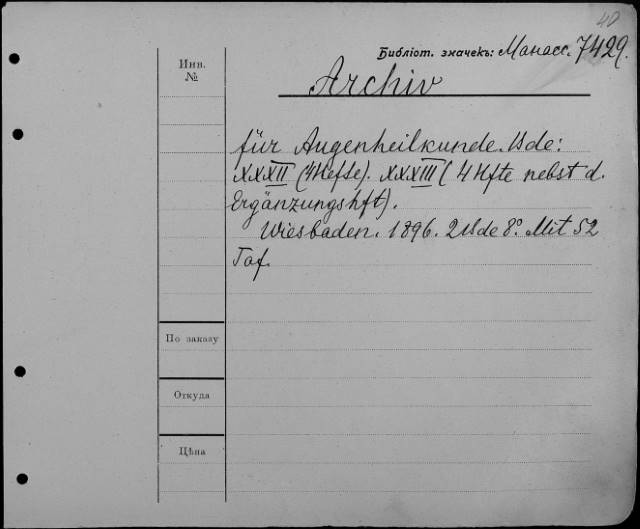 40
Библіот. значекъ: Манасс. 7429.
Инв.
№
Archiv
für Augenheilkunde. Bde:
XXXII (4 Hefte). XXXIII ( 4 Hfte nebst d.
Ergänzungshft).
Wiesbaden. 1896. 2 Bde 8° Mit 52
Taf.
По заказу
Откуда
Цѣна